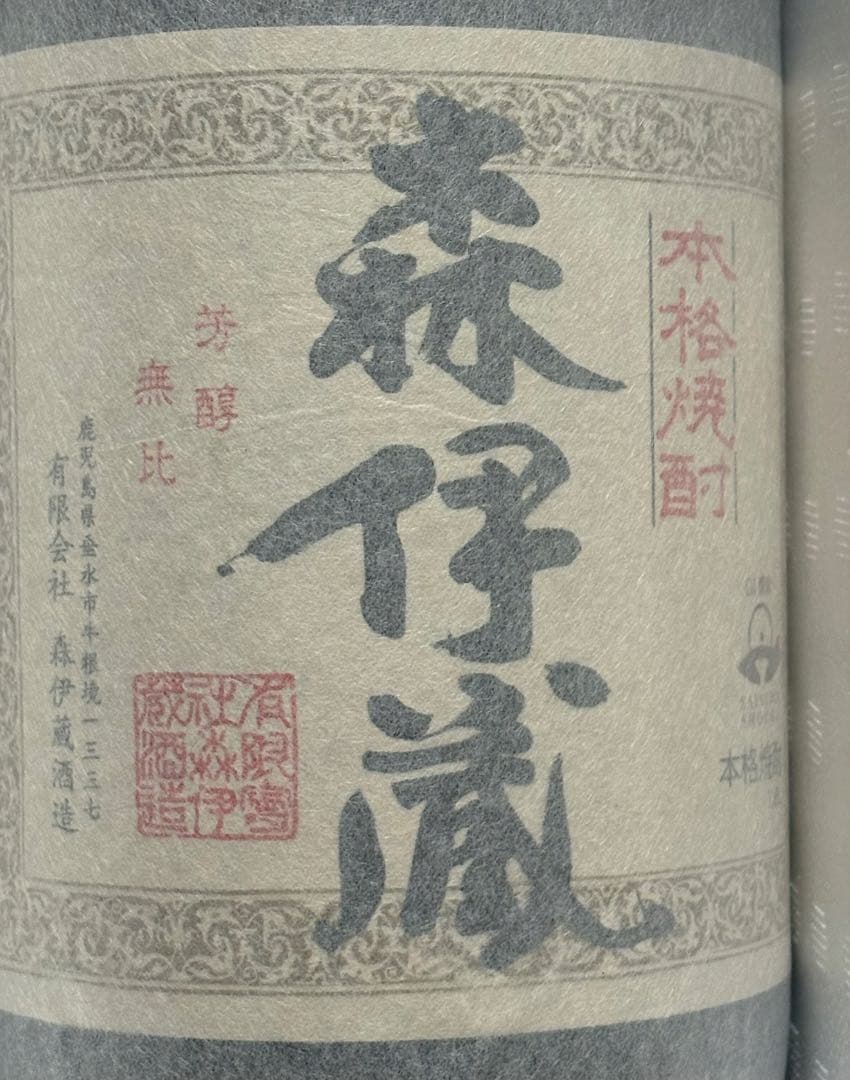 本格焼酎
森伊蔵
芳醇
無比
鹿児島県垂水市牛根境一三三七
有限会社 森伊蔵酒造
有限会
社森伊
蔵酒造
本格焼酎